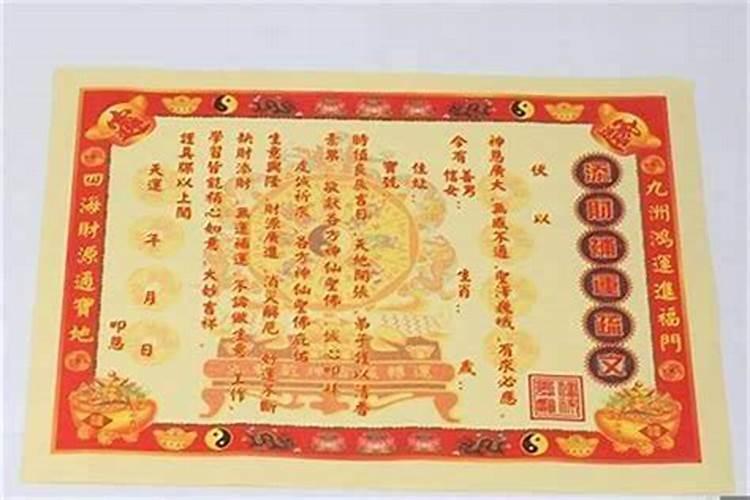 九洲鴻運進福門
添財補運疏文
伏以
神恩廣大 無感不通 聖澤巍峨 有求必應
今有善男信女：　生肖：　歲：
住址：
寶號
時值良辰吉日 天地開張 弟子僅以清香
素果 敬獻各方神仙聖佛 誠心叩拜
虔誠祈求 各方神仙聖佛庇佑
生意興隆 財源廣進 消災解厄 好運不斷
缺財添財 無運補運 不論做生意 工作、
學習皆能稱心如意 大妙吉祥
謹具疏以上聞
天運　年　月　日
叩懇
四海財源通寶地